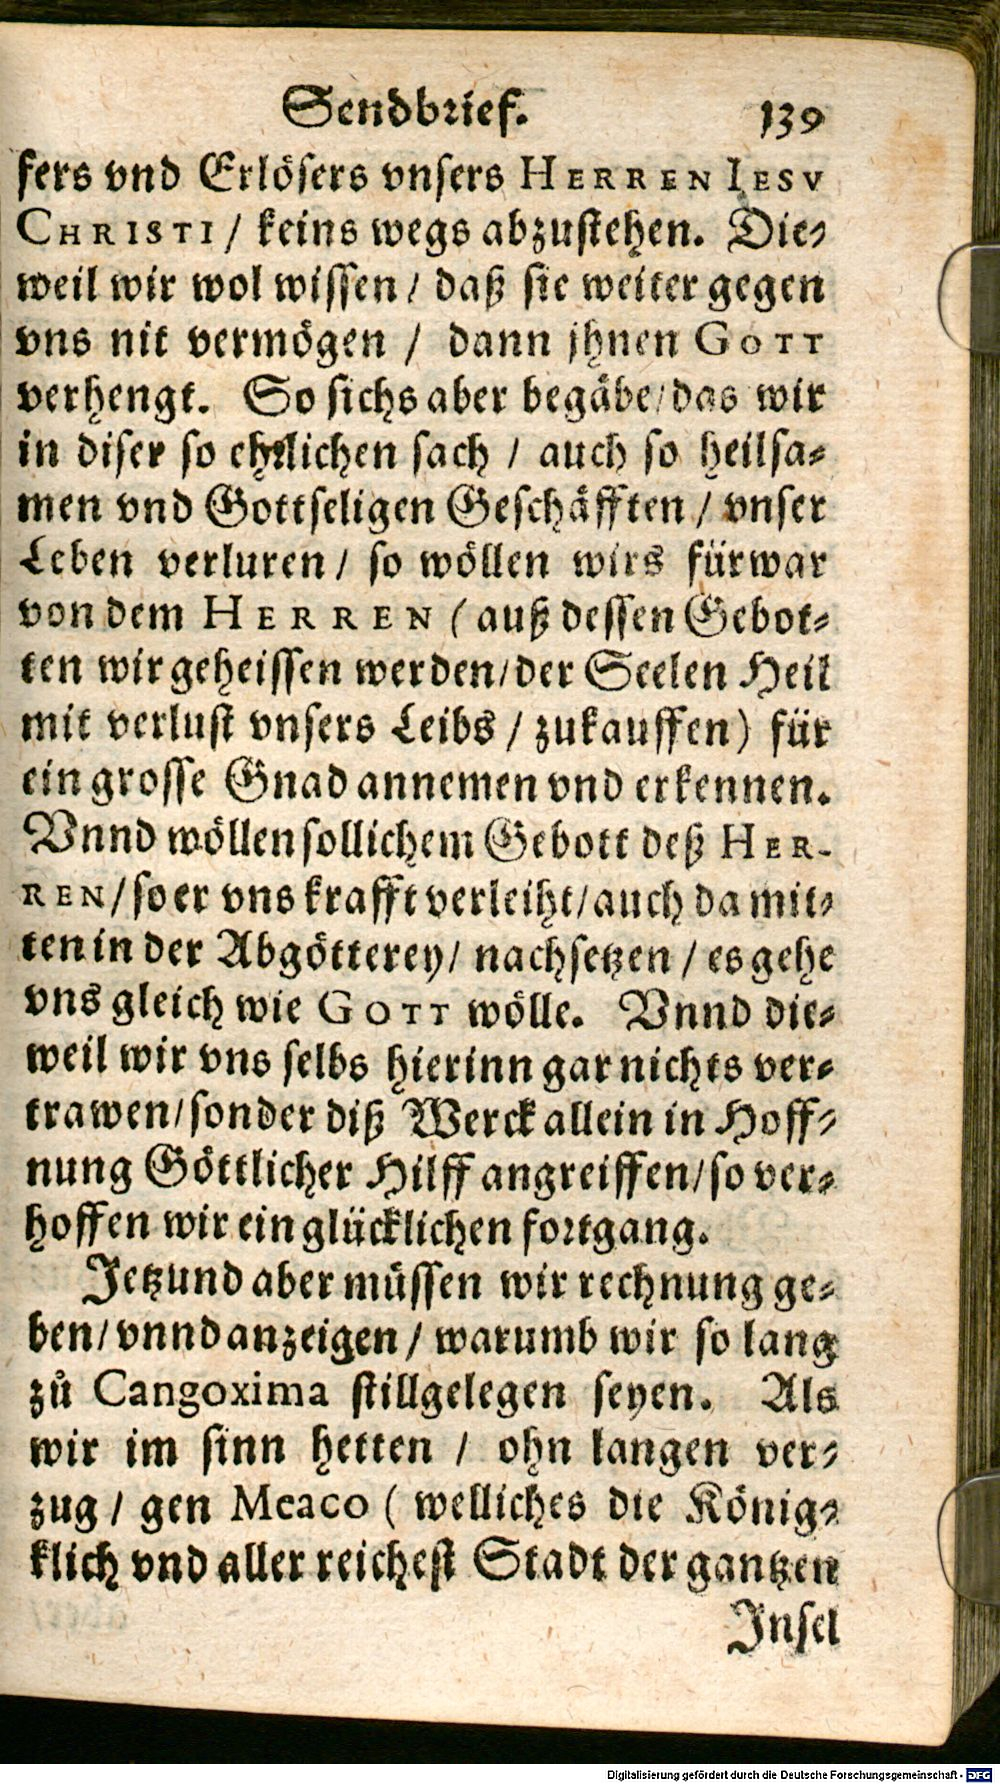 Sendbrief. 139
fers vnd Erlösers vnsers HERREN IESV
CHRISTI / keins wegs abzustehen. Die-
weil wir wol wissen / daß sie weiter gegen
vns nit vermögen / dann jhnen GOTT
verhengt. So sichs aber begäbe / das wir
in diser so ehrlichen sach / auch so heilsa-
men vnd Gottseligen Geschäfften / vnser
Leben verluren / so wöllen wirs fürwar
von dem HERREN ( auß dessen Gebot-
ten wir geheissen werden / der Seelen Heil
mit verlust vnsers Leibs / zukauffen ) für
ein grosse Gnad annemen vnd erkennen.
Vnnd wöllen sollichem Gebott deß HER-
REN / so er vns krafft verleiht / auch da mit-
ten in der Abgötterey / nachsetzen / es gehe
vns gleich wie GOTT wölle. Vnnd die-
weil wir vns selbs hierinn gar nichts ver-
trawen / sonder diß Werck allein in Hoff-
nung Göttlicher Hilff angreiffen / so ver-
hoffen wir ein glücklichen fortgang.
Jetzund aber müssen wir rechnung ge-
ben / vnnd anzeigen / warumb wir so lang
zů Cangoxima stillgelegen seyen. Als
wir im sinn hetten / ohn langen ver-
zug / gen Meaco ( welliches die König-
klich vnd aller reichest Stadt der gantzen
Insel
Digitalisierung gefördert durch die Deutsche Forschungsgemeinschaft - DFG